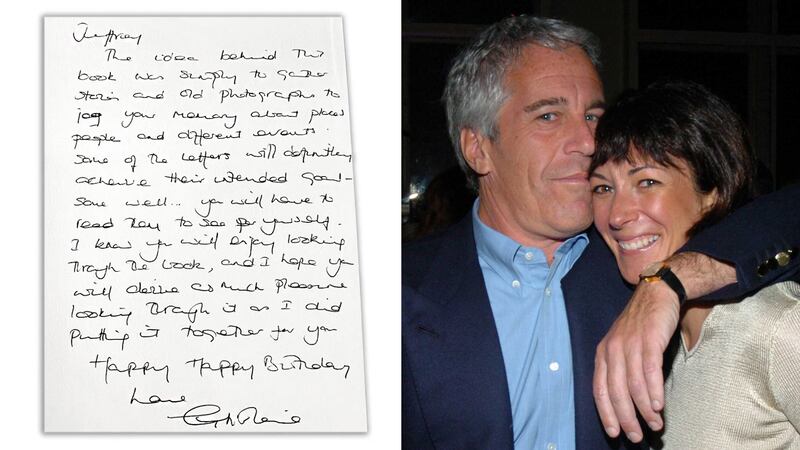 Jeffrey
The idea behind this
book was simply to gather
stories and old photographs to
jog your memory about places
people and different events.
Some of the letters will definitely
achieve their intended goal-
some well... you will have to
read them to see for yourself.
I know you will enjoy looking
through the book, and I hope you
will derive as much pleasure
looking through it as I did
putting it together for you
Happy Happy Birthday
Love